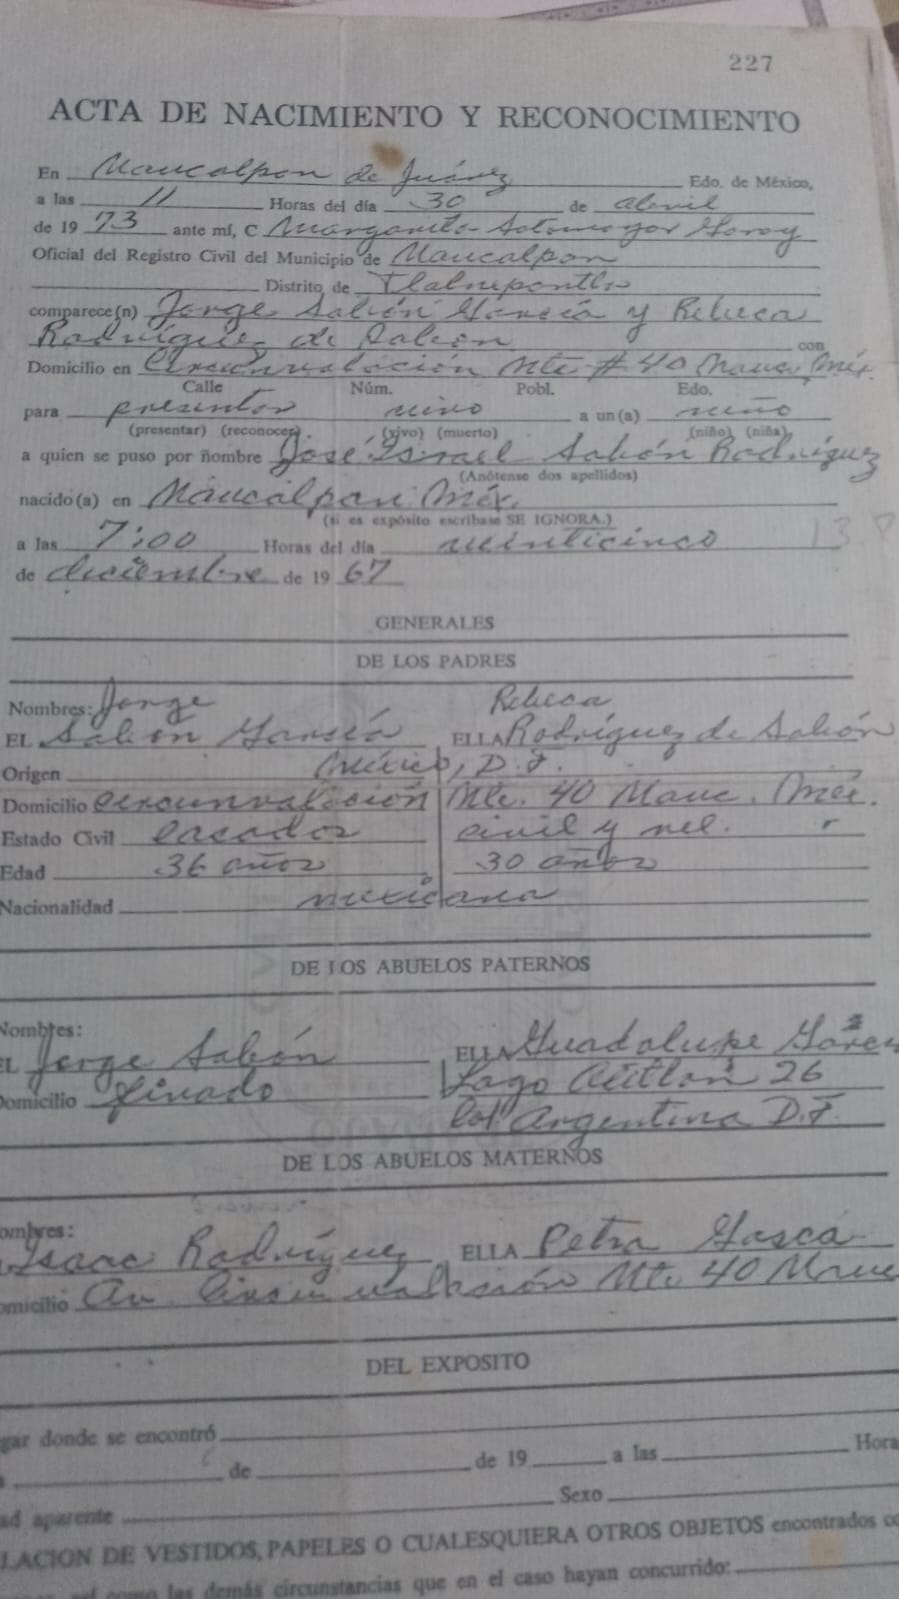 227
ACTA DE NACIMIENTO Y RECONOCIMIENTO
En Naucalpan de Juárez Edo. de México,
a las 11 Horas del día 30 de abril
de 19 73 ante mí, C Margarito Sotomayor
Oficial del Registro Civil del Municipio de Naucalpan
Distrito de Tlalnepantla
comparece(n) Jorge Salión García y Rebeca
Rodríguez de Salión con
Domicilio en Circunvalación Nte # 40 Nauc. Méx.
Calle Núm. Pobl. Edo.
para presentar vivo a un(a) niño
(presentar) (reconocer) (vivo) (muerto) (niño) (niña)
a quien se puso por ñombre José Israel Salión Rodríguez
(Anótense dos apellidos)
nacido(a) en Naucalpan Méx.
(si es expósito escríbase SE IGNORA.)
a las 7:00 Horas del día veinticinco
de diciembre de 19 67
GENERALES
DE LOS PADRES
Nombres: Jorge Rebeca
EL Salión García ELLA Rodríguez de Salión
Origen México, D.F.
Domicilio Circunvalación Nte. 40 Nauc. Méx.
Estado Civil casados civil y rel.
Edad 36 años 30 años
Nacionalidad mexicana
DE LOS ABUELOS PATERNOS
Nombres:
EL Jorge Salión ELLA Guadalupe
Domicilio finado Lago 26
Col. Argentina D.F.
DE LOS ABUELOS MATERNOS
ombres:
Isaac Rodríguez ELLA Petra Gasca
omicilio Av. Circunvalación Nte 40 Nauc
DEL EXPOSITO
gar donde se encontró
de de 19 a las Hora
ad aparente Sexo
LACION DE VESTIDOS, PAPELES O CUALESQUIERA OTROS OBJETOS encontrados co
así como las demás circunstancias que en el caso hayan concurrido: